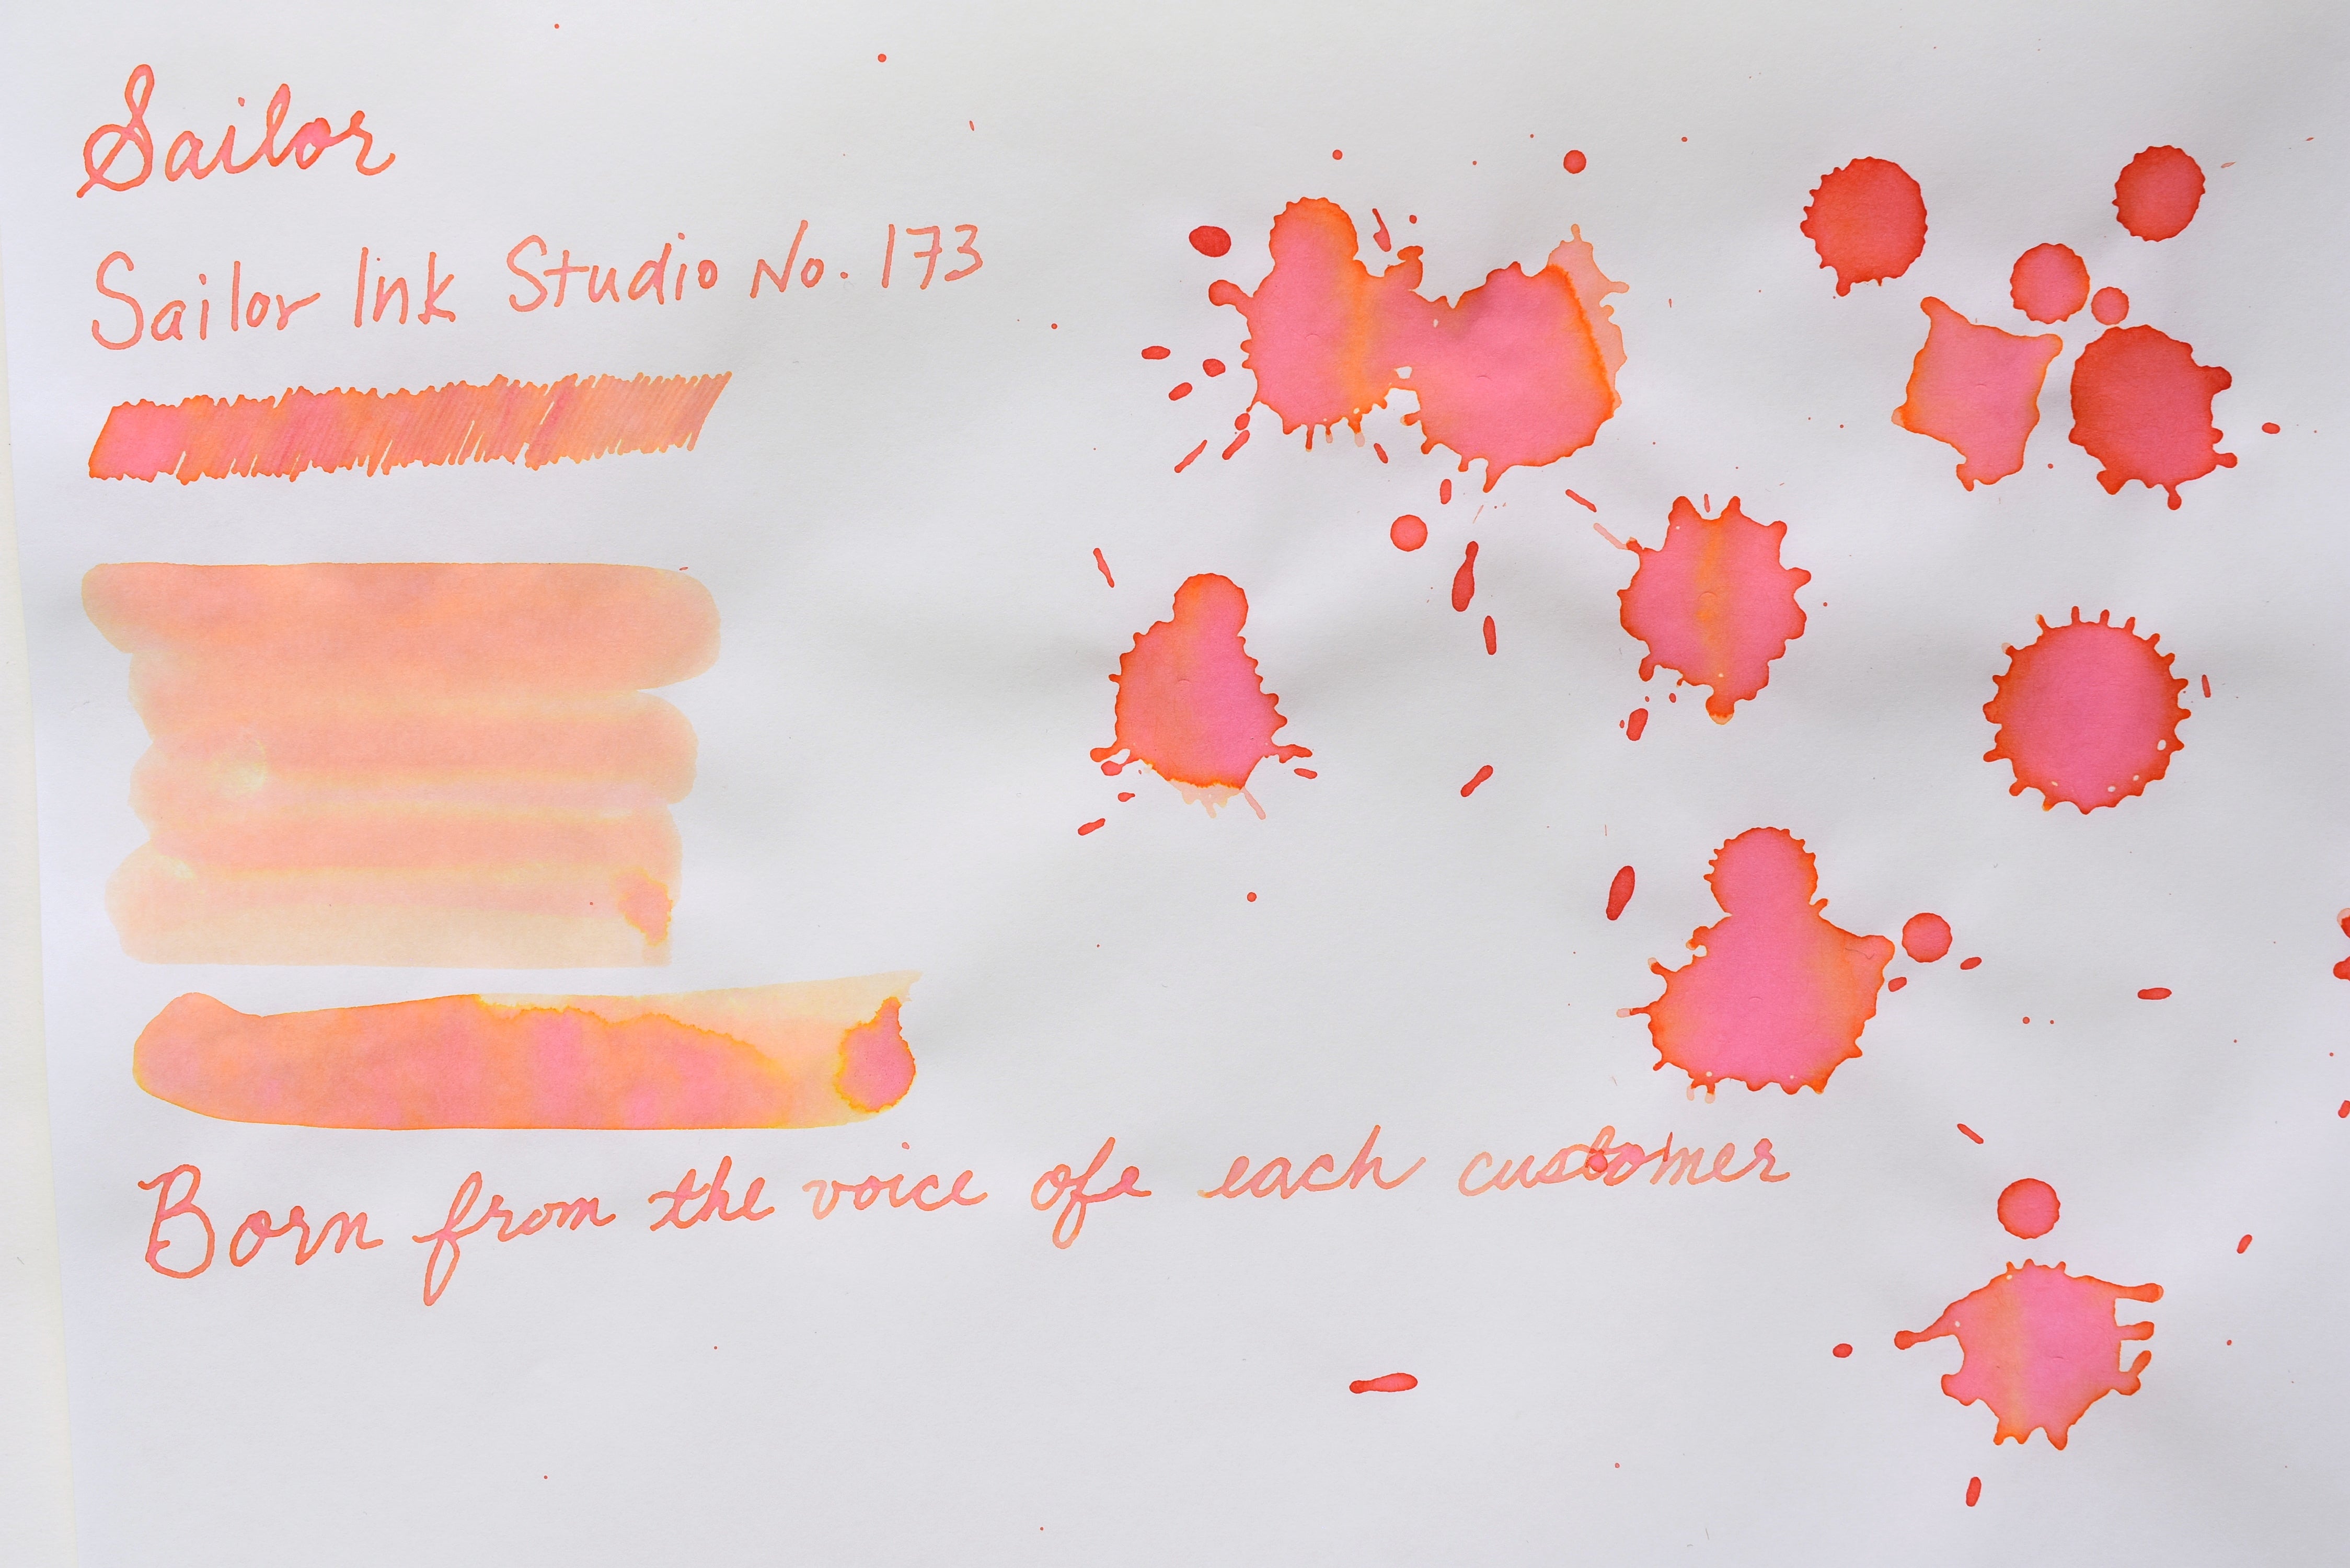 Sailor
Sailor Ink Studio No. 173
Born from the voice ofe each customer